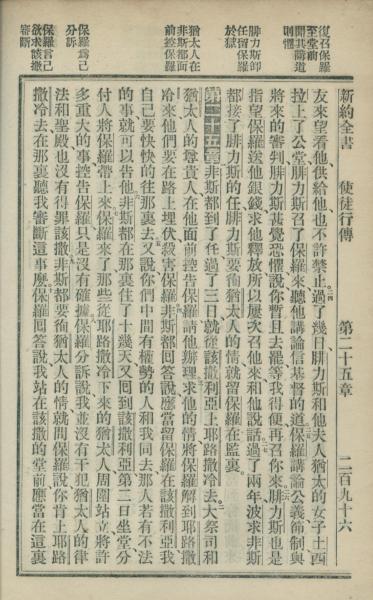 新約全書 使徒行傳 第二十五章 二百九十六
復召保羅
至堂前
聞其講道
則懼
腓力斯卸
任留保羅
於獄
猶太人在
非斯都面
前控保羅
保羅爲己
分訴
保羅言己
欲求該撒
審斷
友來望看他供給他也不許禁止過了幾日腓力斯和他夫人猶太的女子土西
拉上了公堂腓力斯召了保羅來聽他講論信基督的道保羅講論公義節制與
將來的審判腓力斯甚覺恐懼說你暫且去罷等我得便再召你來腓力斯也是
指望保羅送他銀錢求他釋放所以屢次召他來和他說話過了兩年波求非斯
都接了腓力斯的任腓力斯要徇猶太人的情就留保羅在監裏
第二十五章非斯都到了任過了三日就從該撒利亞上耶路撒冷去大祭司和
猶太人的尊貴人在他面前控告保羅請他辦理求他的情將保羅解到耶路撒
冷來他們要在路上埋伏殺害保羅非斯都回答說應當留保羅在該撒利亞我
自己要快快的往那裏去又說你們中間有權勢的人和我同去那人若有不法
的事就可以告他非斯都在那裏住了十幾天又回到該撒利亞第二日坐堂分
付人將保羅帶上來保羅來了那些從耶路撒冷下來的猶太人周圍站立將許
多重大的事控告保羅只是沒有確據保羅分訴說我並沒有干犯猶太人的律
法和聖殿也沒有得罪該撒非斯都要徇猶太人的情就問保羅說你肯上耶路
撒冷去在那裏聽我審斷這事麼保羅回答說我站在該撒的堂前應當在這裏